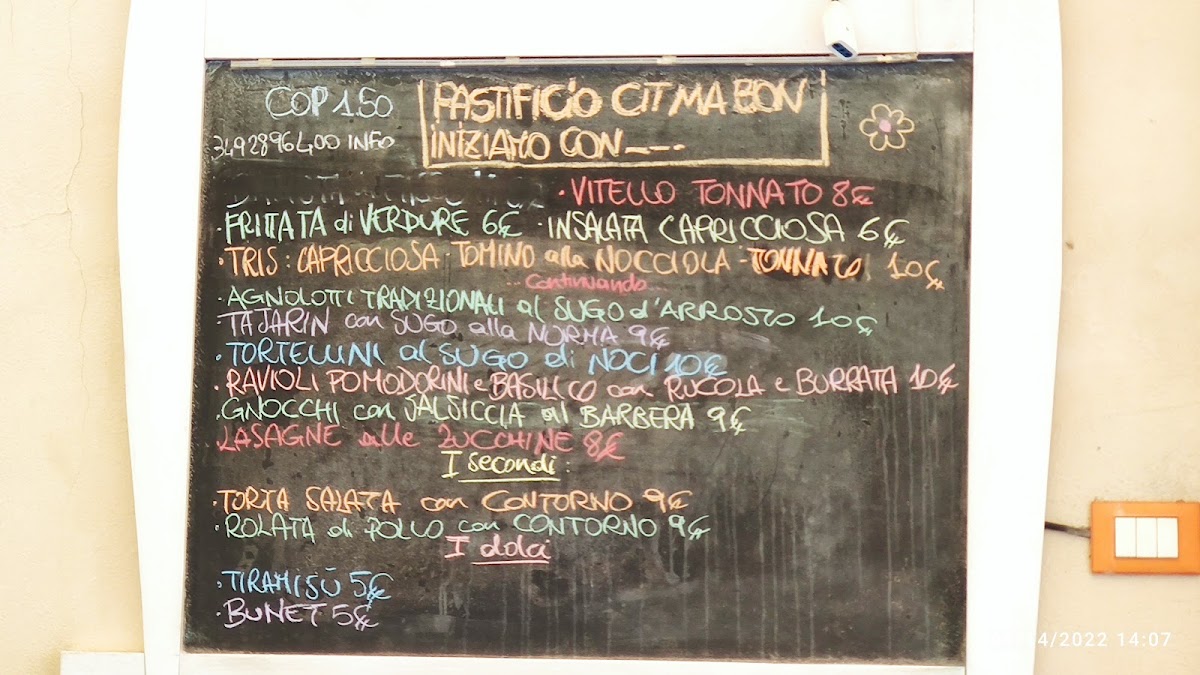 COP 1.50
3492896400 INFO
PASTIFICIO CIT MA BON
INIZIAMO CON___...
· VITELLO TONNATO 8€
· FRITTATA di VERDURE 6€ · INSALATA CAPRICCIOSA 6€
· TRIS: CAPRICCIOSA - TOMINO alla NOCCIOLA - TONNATO 10€
... Continuando...
· AGNOLOTTI TRADIZIONALI al SUGO d'ARROSTO 10€
· TAJARIN con SUGO alla NORMA 9€
· TORTELLINI al SUGO di NOCI 10€
· RAVIOLI POMODORINI e BASILICO con RUCOLA e BURRATA 10€
· GNOCCHI con SALSICCIA al BARBERA 9€
LASAGNE alle ZUCCHINE 8€
I secondi:
· TORTA SALATA con CONTORNO 9€
· ROLATA di POLLO con CONTORNO 9€
I dolci
· TIRAMISÙ 5€
· BUNET 5€
4/2022 14:07